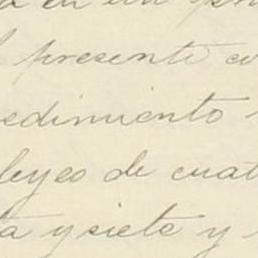 en un
presente co
edimiento
leyes de cuat
ta y siete y